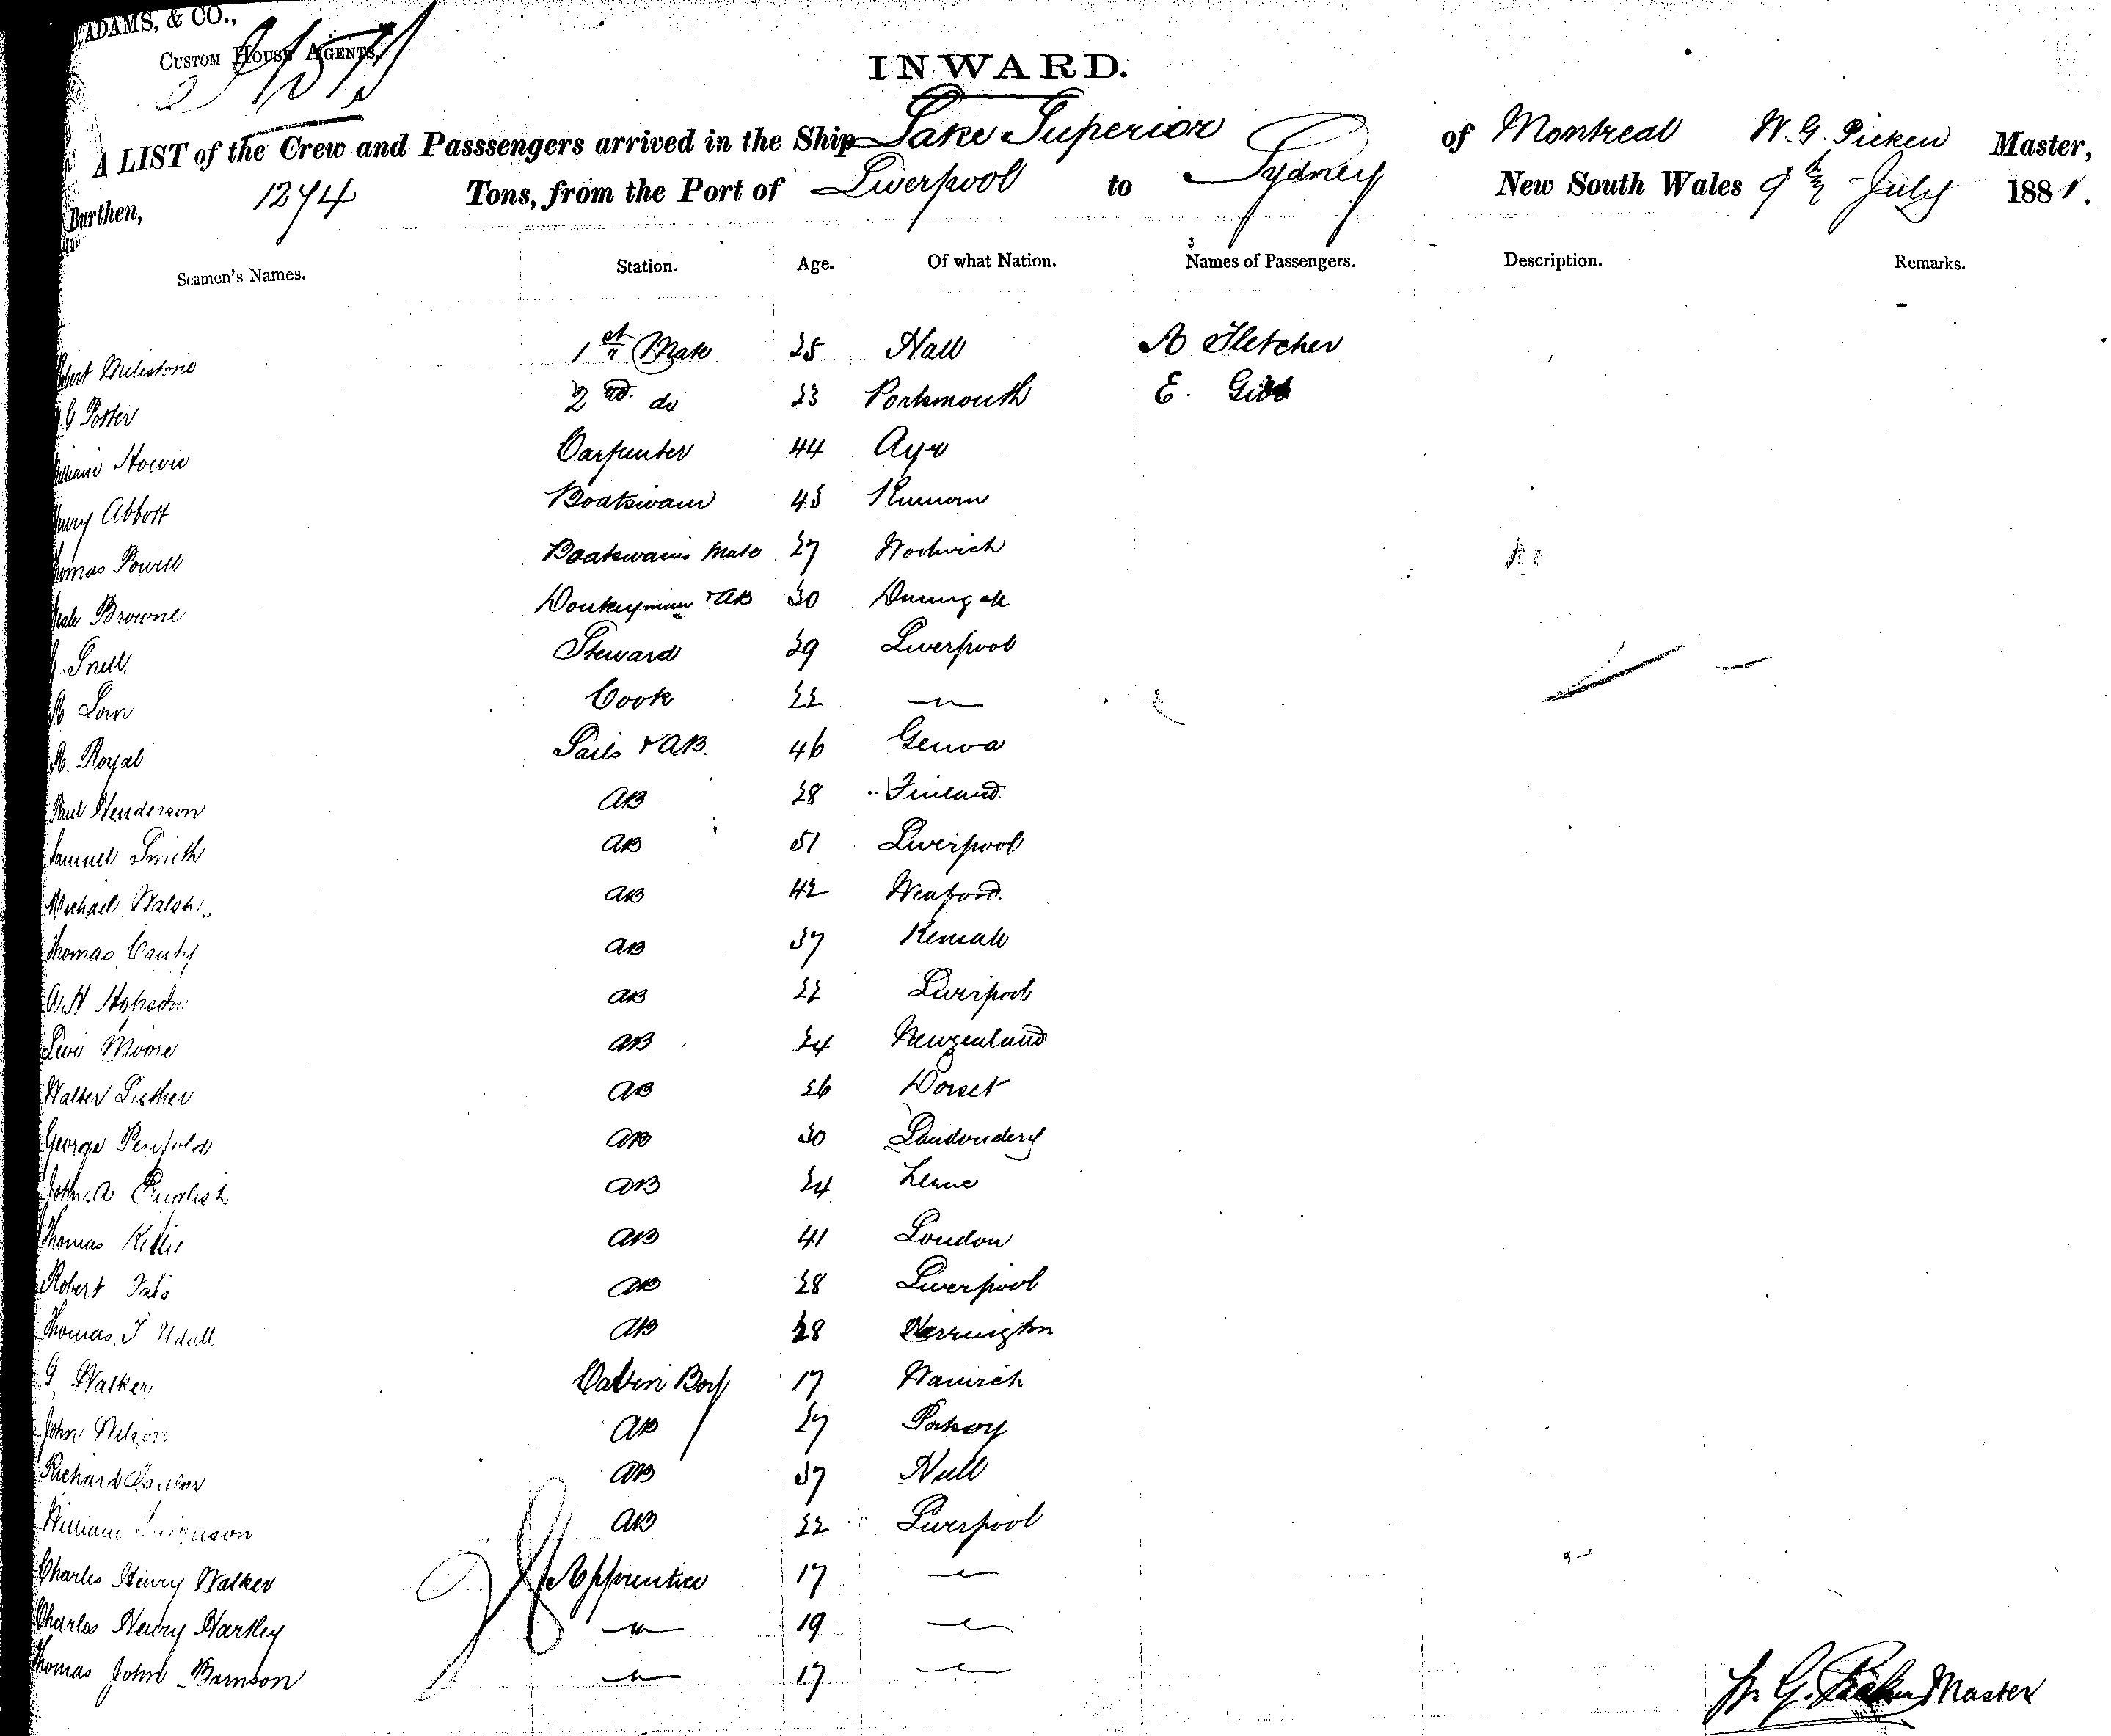 ADAMS, & CO.,
CUSTOM HOUSE AGENTS,
INWARD.
A LIST of the Crew and Passsengers arrived in the Ship Lake Superior of Montreal W. G. Picken Master,
Burthen, 1274 Tons, from the Port of Liverpool to Sydney New South Wales 9th July 1881.
Seamen's Names. Station. Age. Of what Nation. Names of Passengers. Description. Remarks.
Milestone 1st Mate 25 Hall A Fletcher
G Potter 2nd do 23 Portsmouth E.
Howie Carpenter 44 Ayr
Abbott Boatswain 43
Powell Boatswains Mate 27 Woolwich
Browne Donkeyman & AB 30
Snell. Steward 29 Liverpool
Cook 22 — " —
Royal Sails & AB. 46 Genoa
Paul Henderson AB 28 Finland
Samuel Smith AB 51 Liverpool
Michael Walsh AB 42 Wexford.
Thomas AB 37 Kinsale
A. H AB 22 Liverpool
Levi Moore AB 24 Newzealand
Walter AB 26 Dorset
George Penfold AB 30 Londondery
John. A English AB 24
Thomas AB 41 London
Robert AB 28 Liverpool
Thomas. T Udall AB 28
G Walker Cabin Boy 17
John AB 27
Richard AB 37 Hull
William AB 22 Liverpool
Charles Henry Walker Apprentice 17 — " —
Charles Henry Hartley — " — 19 — " —
Thomas John — " — 17 — " —
W. G. Picken Master